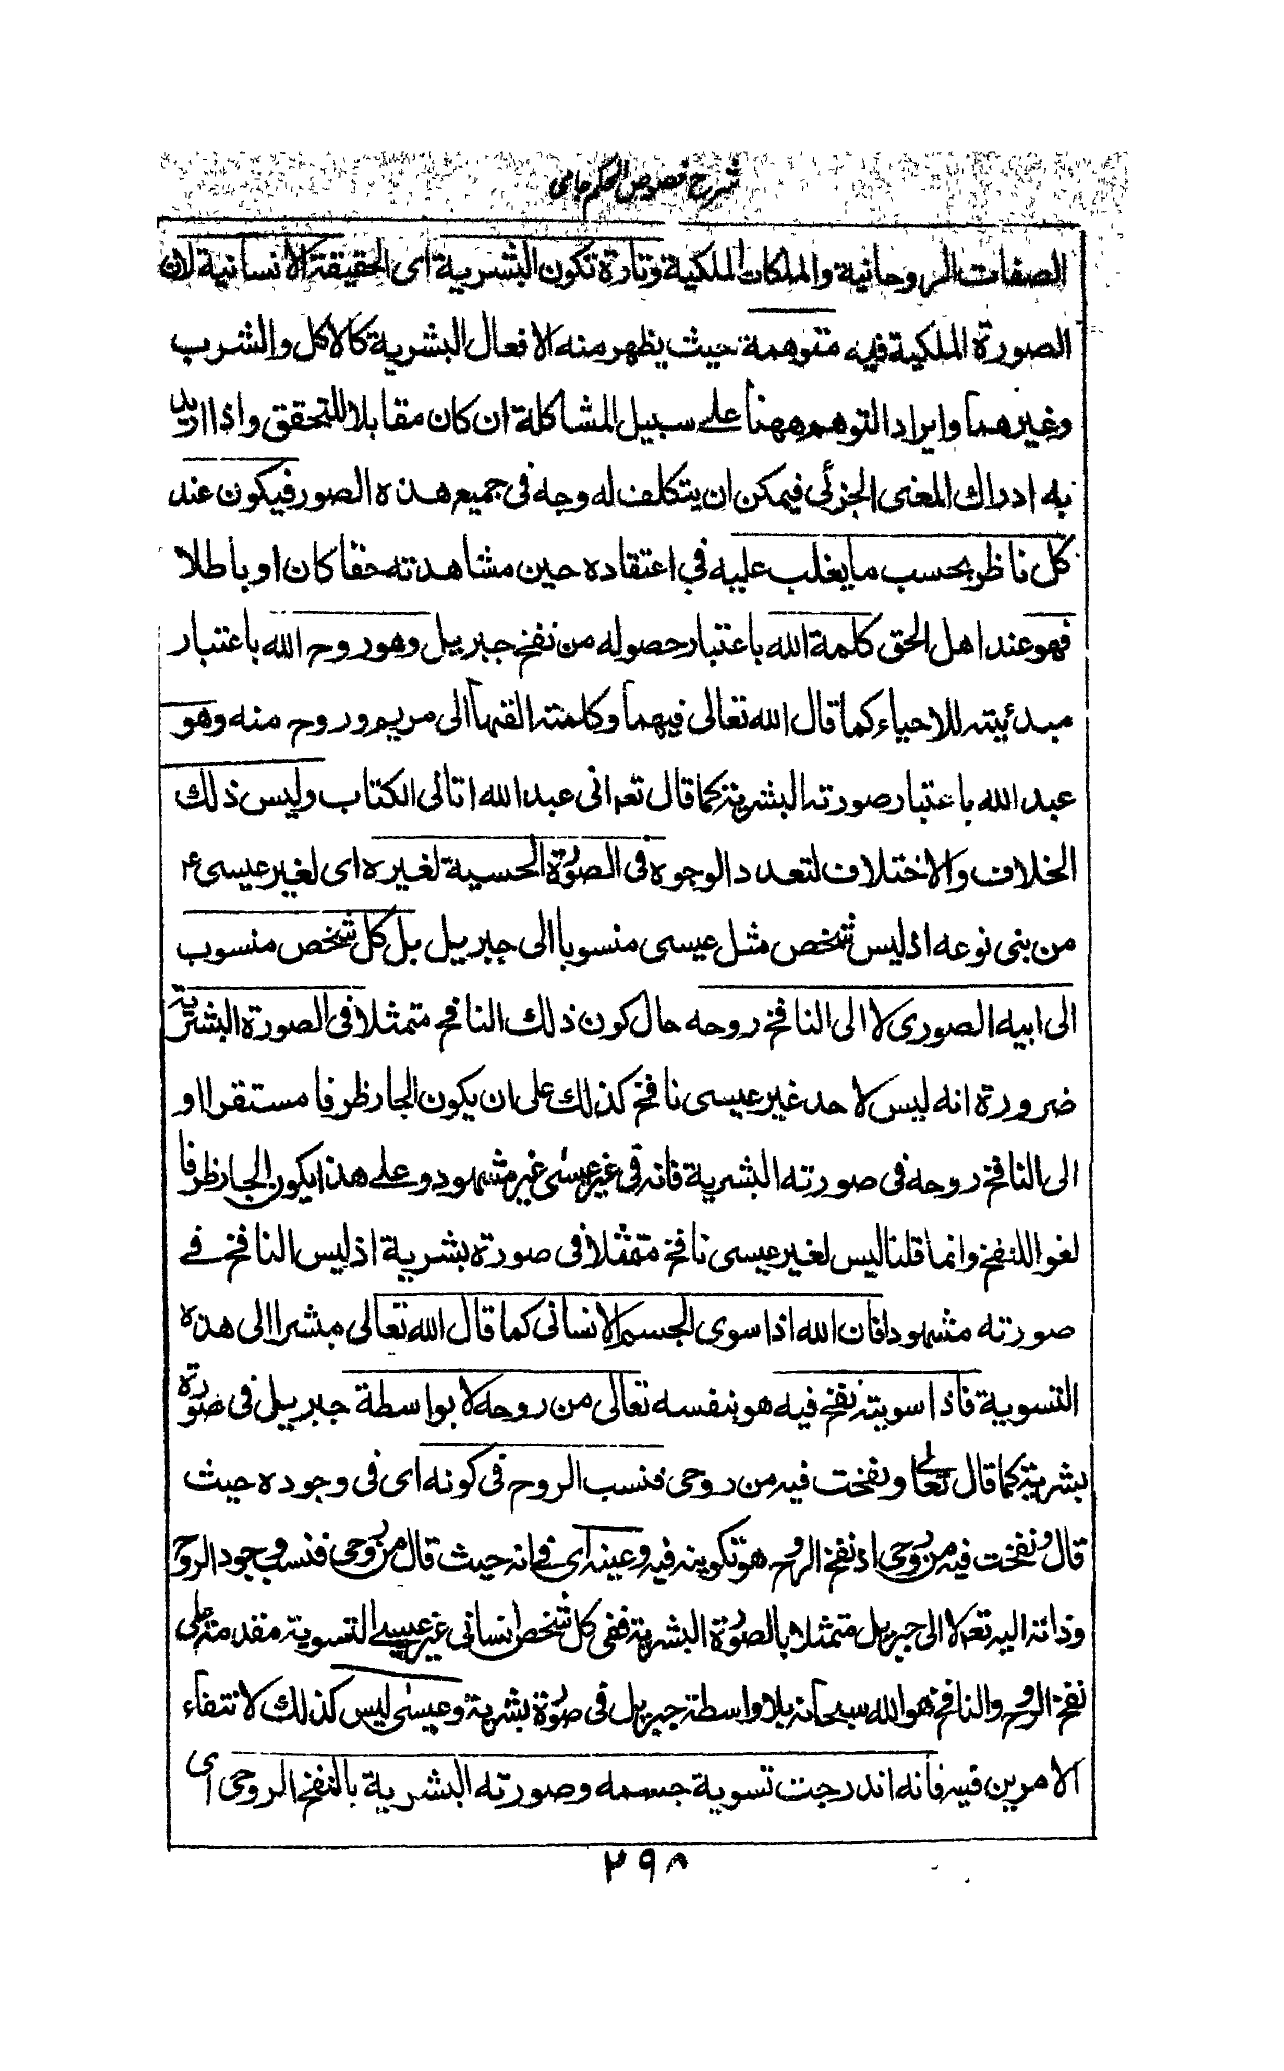 شرح فصوص الحكم جامى
الصفات الروحانية والملكات الملكية وتارة تكون البشرية اى الحقيقة الانسانية لان
الصورة الملكية فيه متوهمة حيث يظهر منه الافعال البشرية كالاكل والشرب
وغيرهما وايراد التوهم ههنا على سبيل المشاكلة ان كان مقابلا للتحقق واذا اريد
به ادراك المعنى الجزئى فيمكن ان يتكلف له وجه فى جميع هذه الصور فيكون عند
كل ناظر بحسب ما يغلب عليه فى اعتقاده حين مشاهدته حقا كان او باطلا
فهو عند اهل الحق كلمة الله باعتبار حصوله من نفخ جبريل وهو روح الله باعتبار
مبدئيته للاحياء كما قال الله تعالى فيهما وكلمته القٰها الى مريم وروح منه وهو
عبد الله باعتبار صورته البشرية كما قال تعم انى عبد الله اتانى الكتاب وليس ذلك
الخلاف والاختلاف لتعدد الوجوه فى الصورة الحسية لغيره اى لغير عيسى ع
من بنى نوعه اذ ليس شخص مثل عيسى منسوبا الى جبريل بل كل شخص منسوب
الى ابيه الصورى لا الى النافخ روحه حال كون ذلك النافخ متمثلا فى الصورة البشرية
ضرورة انه ليس لاحد غير عيسى نافخ كذلك على ان يكون الجار ظرفا مستقرا او
الى النافخ روحه فى صورته البشرية فانه فى غير عيسى غير مشهود وعلى هذا يكون الجار ظرفا
لغوا للنفخ وانما قلنا ليس لغير عيسى نافخ متمثلا فى صورة بشرية اذ ليس النافخ فے
صورته مشهودا فان الله اذا سوى الجسم الانسانى كما قال الله تعالى مشيرا الى هذه
التسوية فاذا سويته نفخ فيه هو بنفسه تعالى من روحه لا بواسطة جبريل فى صورة
بشرية كما قال تعالى ونفخت فيه من روحى فنسب الروح فى كونه اى فى وجوده حيث
قال ونفخت فيه من روحى اذ نفخ الروح هو تكوينه فيه وعينه اى فے انه حيث قال من روحى فنسب وجود الروح
وذاته اليه تعم لا الى جبريل متمثلا بالصورة البشرية ففى كل شخص انسانى غير عيسے التسوية مقدمة على
نفخ الروح والنافخ هو الله سبحانه بلا واسطة جبريل فى صورة بشرية وعيسى ليس كذلك لانتفاء
الامرين فيه فانه اندرجت تسوية جسمه وصورته البشرية بالنفخ الروحى اى
٢٩٨